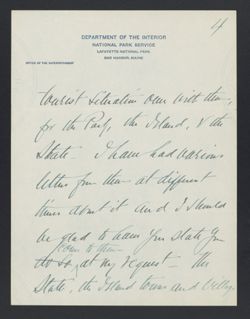 4
DEPARTMENT OF THE INTERIOR
NATIONAL PARK SERVICE
LAFAYETTE NATIONAL PARK
BAR HARBOR, MAINE
OFFICE OF THE SUPERINTENDENT
tourist situation over with them,
for the Park, the Island, & the
State. I have had various
letters from them at different
times about it and I should
be glad to have you state you
come to them
do so, at my request — the
State, the Island towns and